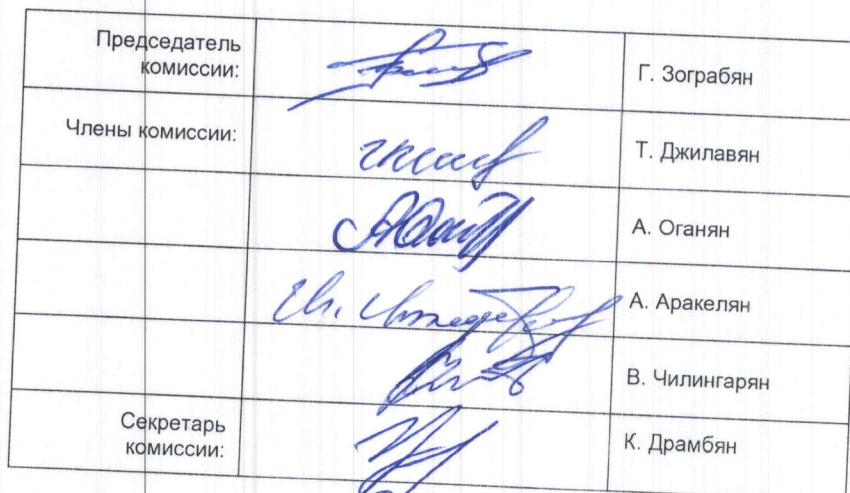 Председатель
комиссии:
Г. Зограбян
Члены комиссии:
Т. Джилавян
А. Оганян
А. Аракелян
В. Чилингарян
Секретарь
комиссии:
К. Драмбян